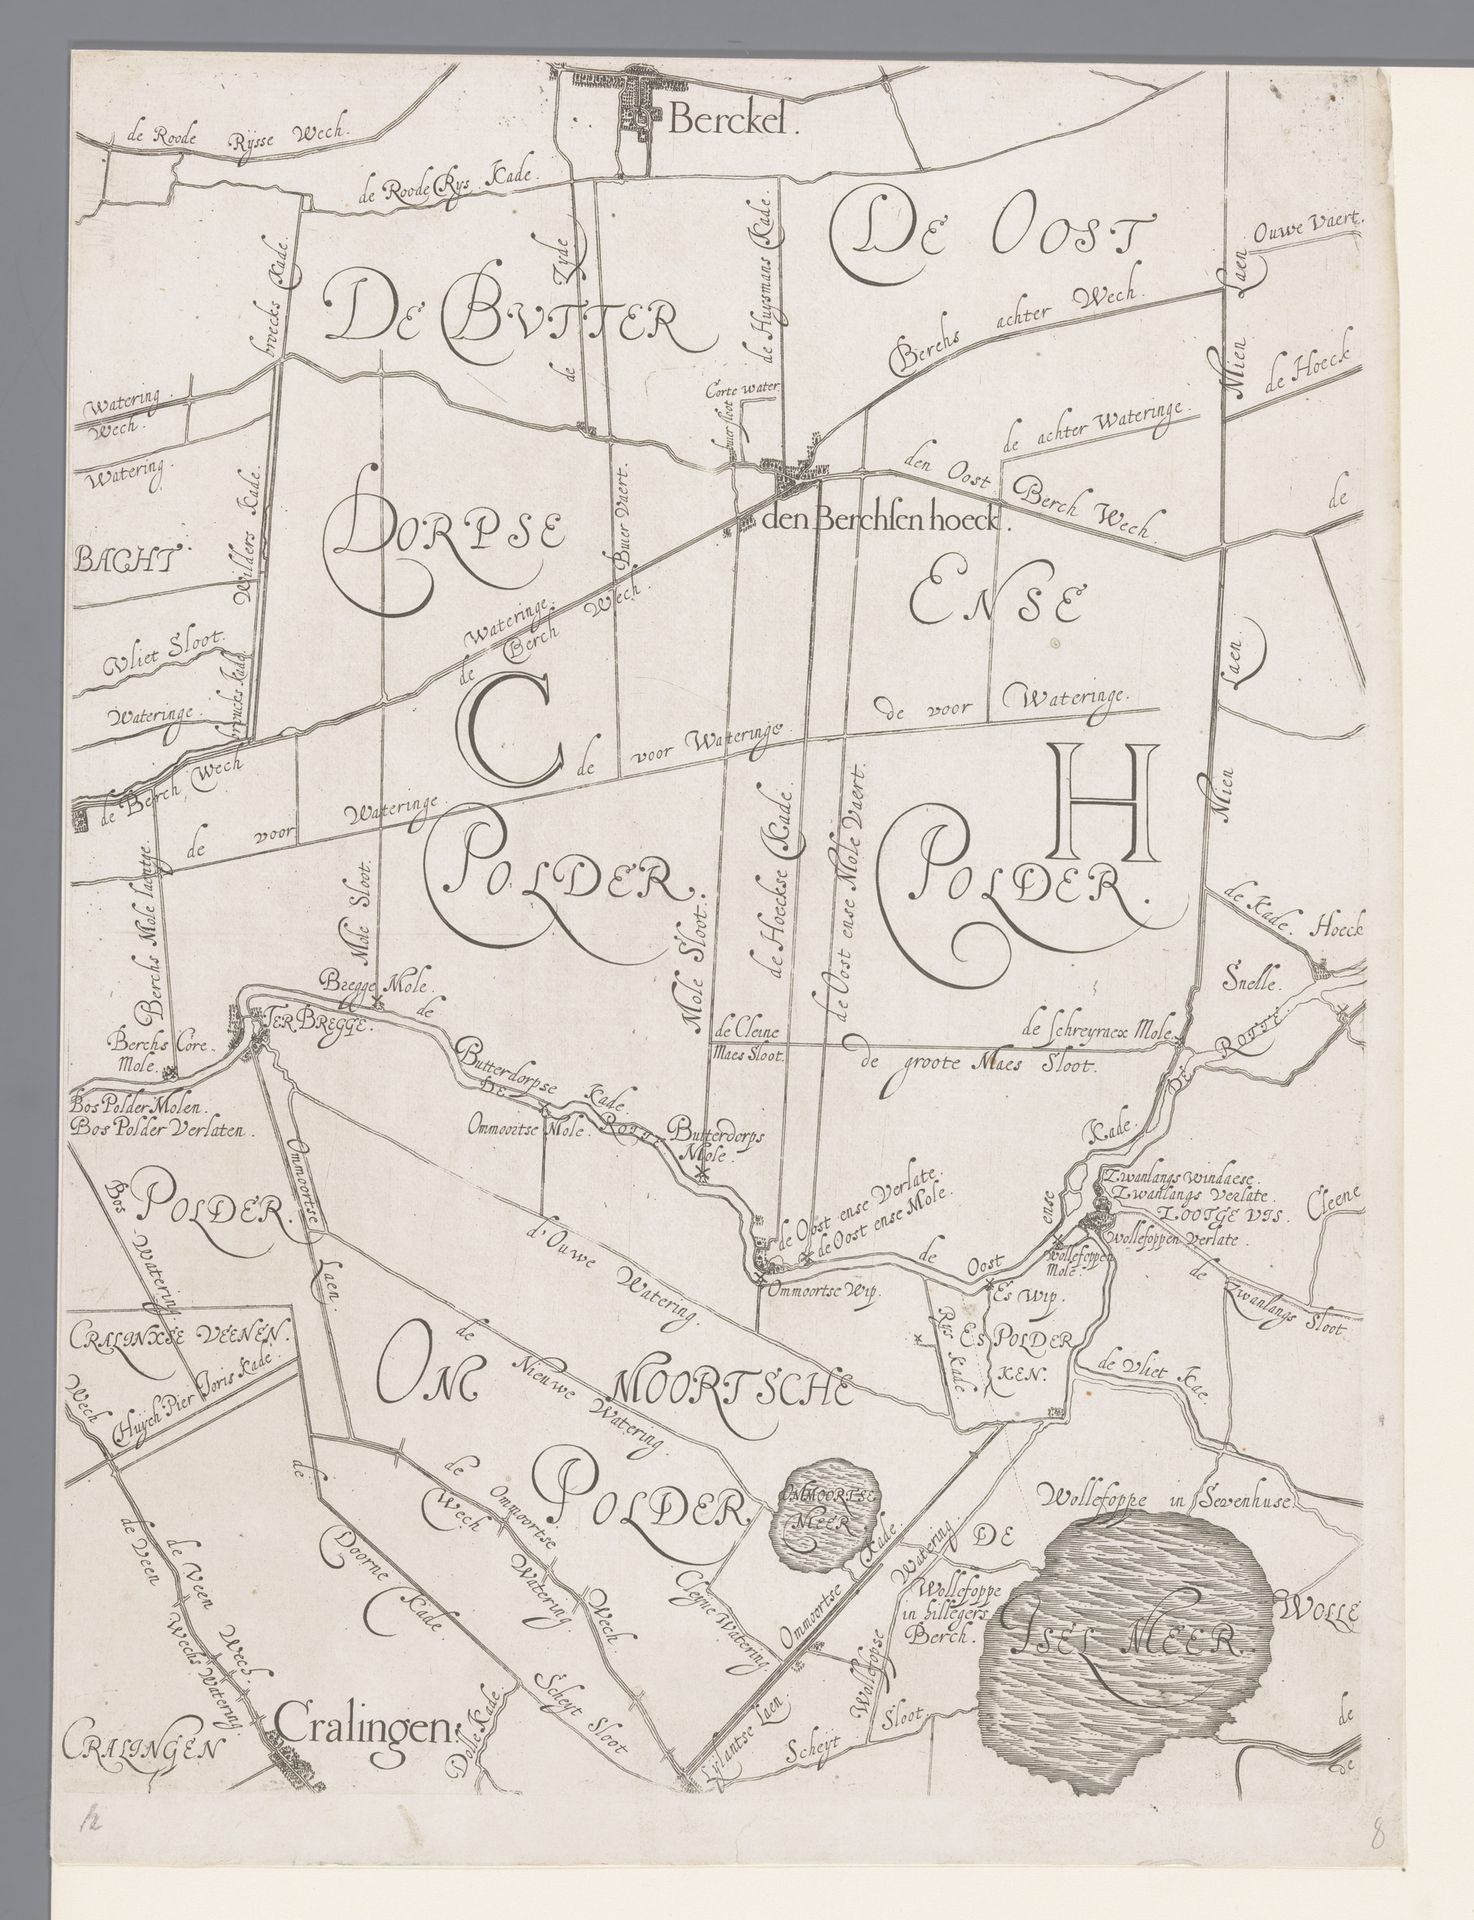 Berckel.
de Roode Rysse Wech.
de Roode Rys Kade.
DE OOST
Ouwe Vaert.
broecks Kade.
de Zyde
de Huysmans Kade.
Mien Laen
DE BVTTER
Berchs achter Wech.
de Hoeck
Watering.
Wech.
Corte water
buer sloot
de achter Wateringe.
Watering.
den Oost Berch Wech.
de
Wilders Kade.
DORPSE
Buer Vaert.
den Berchsen hoeck.
BACHT
ENSE
Wateringe
de Berch Wech.
Vliet Sloot.
Mien Laen.
Wateringe.
C
de voor Wateringe.
de voor Wateringe
de Berch Wech
H
de voor Wateringe.
POLDER.
POLDER.
Berchs Mole laentje.
Mole Sloot.
Mole Sloot.
de Hoeckse Kade.
de Oost ense Mole Vaert.
de Kade. Hoeck
Bregge Mole.
Snelle.
TER BREGGE.
de Butterdorpse Kade
de Cleine
Maes Sloot.
de Schreyraex Mole.
de groote Maes Sloot.
DE ROTTE
Berchs Core.
Mole.
Bos Polder Molen.
Bos Polder Verlaten.
Ommoortse Mole.
DE ROTTE
Butterdorps
Mole.
Kade.
Ommoortse Laen.
Bos Watering.
POLDER.
de Oost ense Verlate.
de Oost ense Mole.
Zwanlangs windaese.
Zwanlangs Verlate.
ZOOTGE VIS.
Cleene
Wollefoppen Verlate.
Wollefoppen
Mole.
d'Ouwe Watering.
de Oost ense
Ommoortse Wip.
Es Wip.
de Zwanlangs Sloot.
CRALINXSE VEENEN.
Rys Kade.
ES POLDER
KEN.
Huych Pier Joris Kade.
Wech
OM MOORTSCHE
de Nieuwe Watering.
de Vliet Kae.
de Ommoortse Wech
Watering. Wech
POLDER.
OMMOORTSE
MEER
Wollefoppe in Sevenhuse
de Doorne Kade.
de Veen
de Veen Wech.
Wechs Watering.
Cleyne Watering.
Ommoortse Kade.
Wollefopse Watering.
DE
Wollefoppe
in hillegers
Berch.
ISEL MEER.
WOLLE
Scheyt Sloot
Dolle Kade.
Cralingen.
CRALINGEN
Lylantse Laen
Scheyt Sloot
de
de
8